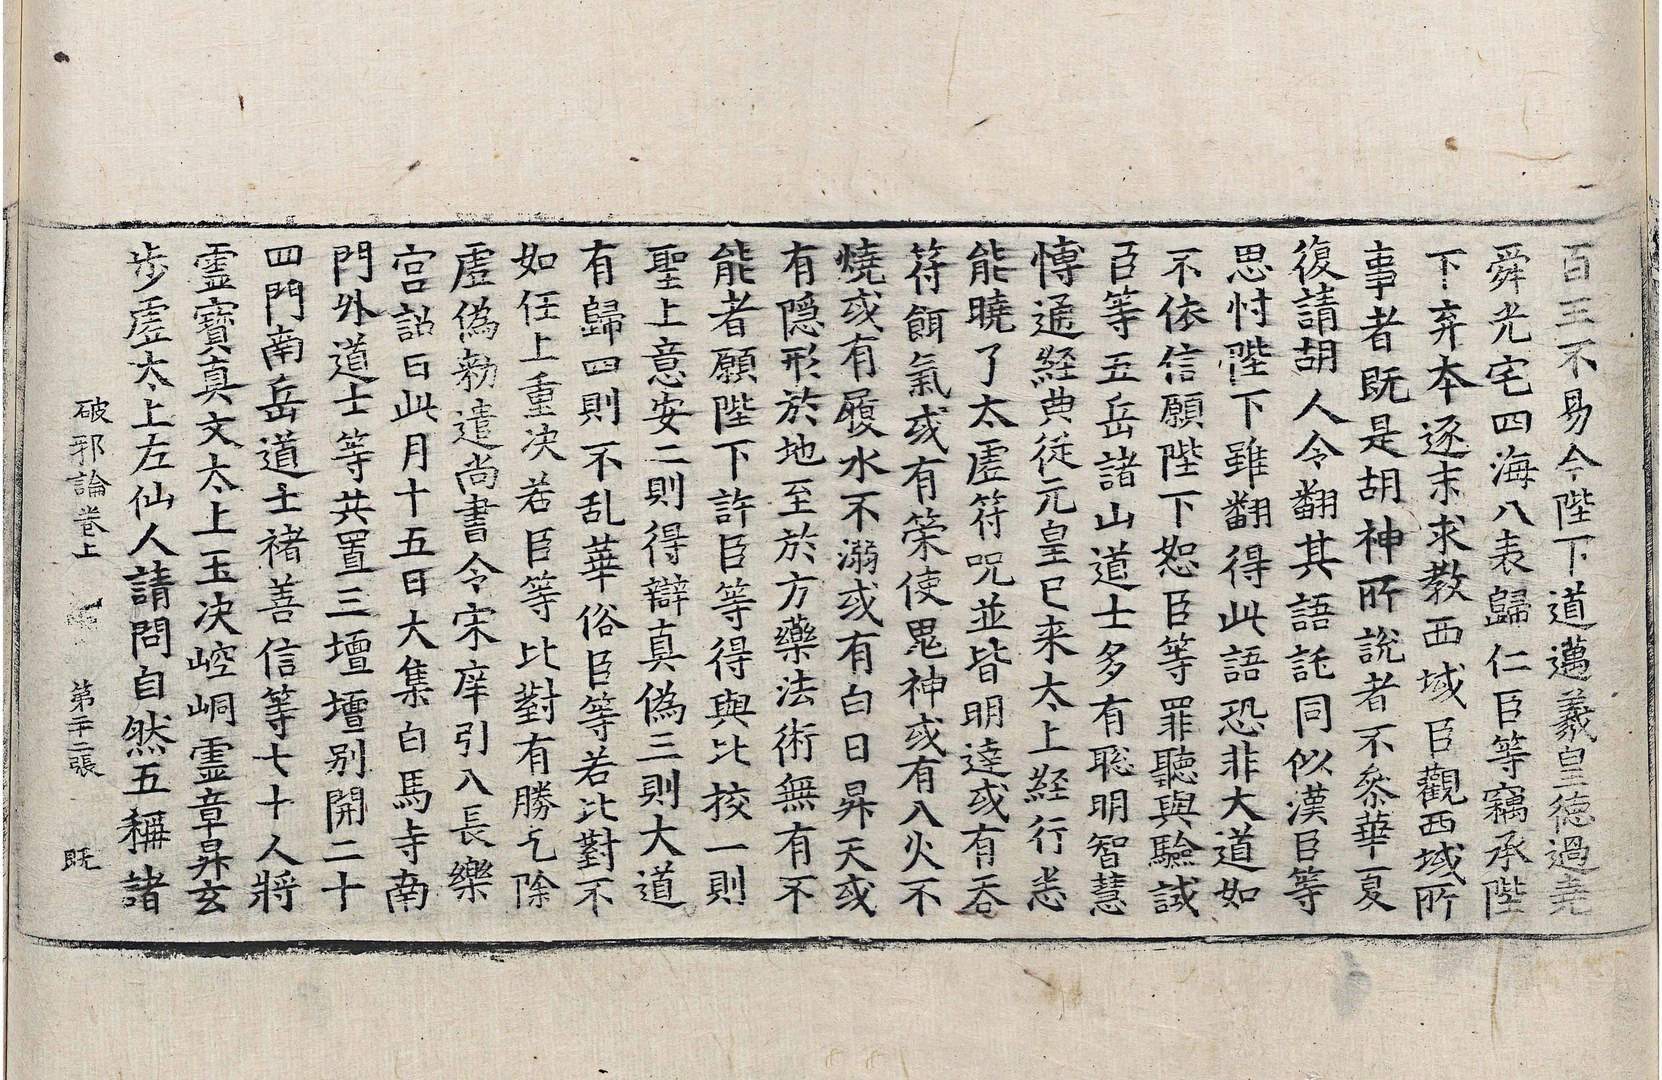 百王不易今陛下道邁羲皇德過堯
舜光宅四海八表歸仁臣等竊承陛
下弃本逐末求教西域臣觀西域所
事者既是胡神所說者不叅華夏
復請胡人令翻其語託同似漢臣等
思忖陛下雖翻得此語恐非大道如
不依信願陛下恕臣等罪聽與驗試
臣等五岳諸山道士多有聡明智慧
愽通經典從元皇已来太上經行悉
能曉了太虛符呪並皆明達或有吞
符餌氣或有䇿使鬼神或有入火不
燒或有履水不溺或有白日昇天或
有隱形於地至於方藥法術無有不
能者願陛下許臣等得與比挍一則
聖上意安二則得辯真偽三則大道
有歸四則不乱華俗臣等若比對不
如任上重决若臣等比對有勝乞除
虛偽勑遣尚書令宋庠引入長樂
宮詔曰此月十五日大集白馬寺南
門外道士等共置三壇壇别開二十
四門南岳道士禇善信等七十人將
靈寶真文太上玉决崆峒靈章昇玄
步虛太上左仙人請問自然五稱諸
破邪論卷上 第二十二張 既